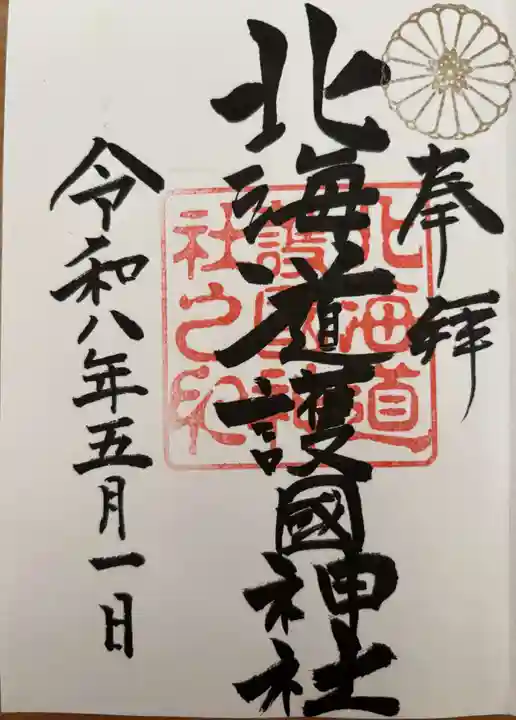 奉拝
北海道護國神社
北海道
護國神
社之印
令和八年五月一日